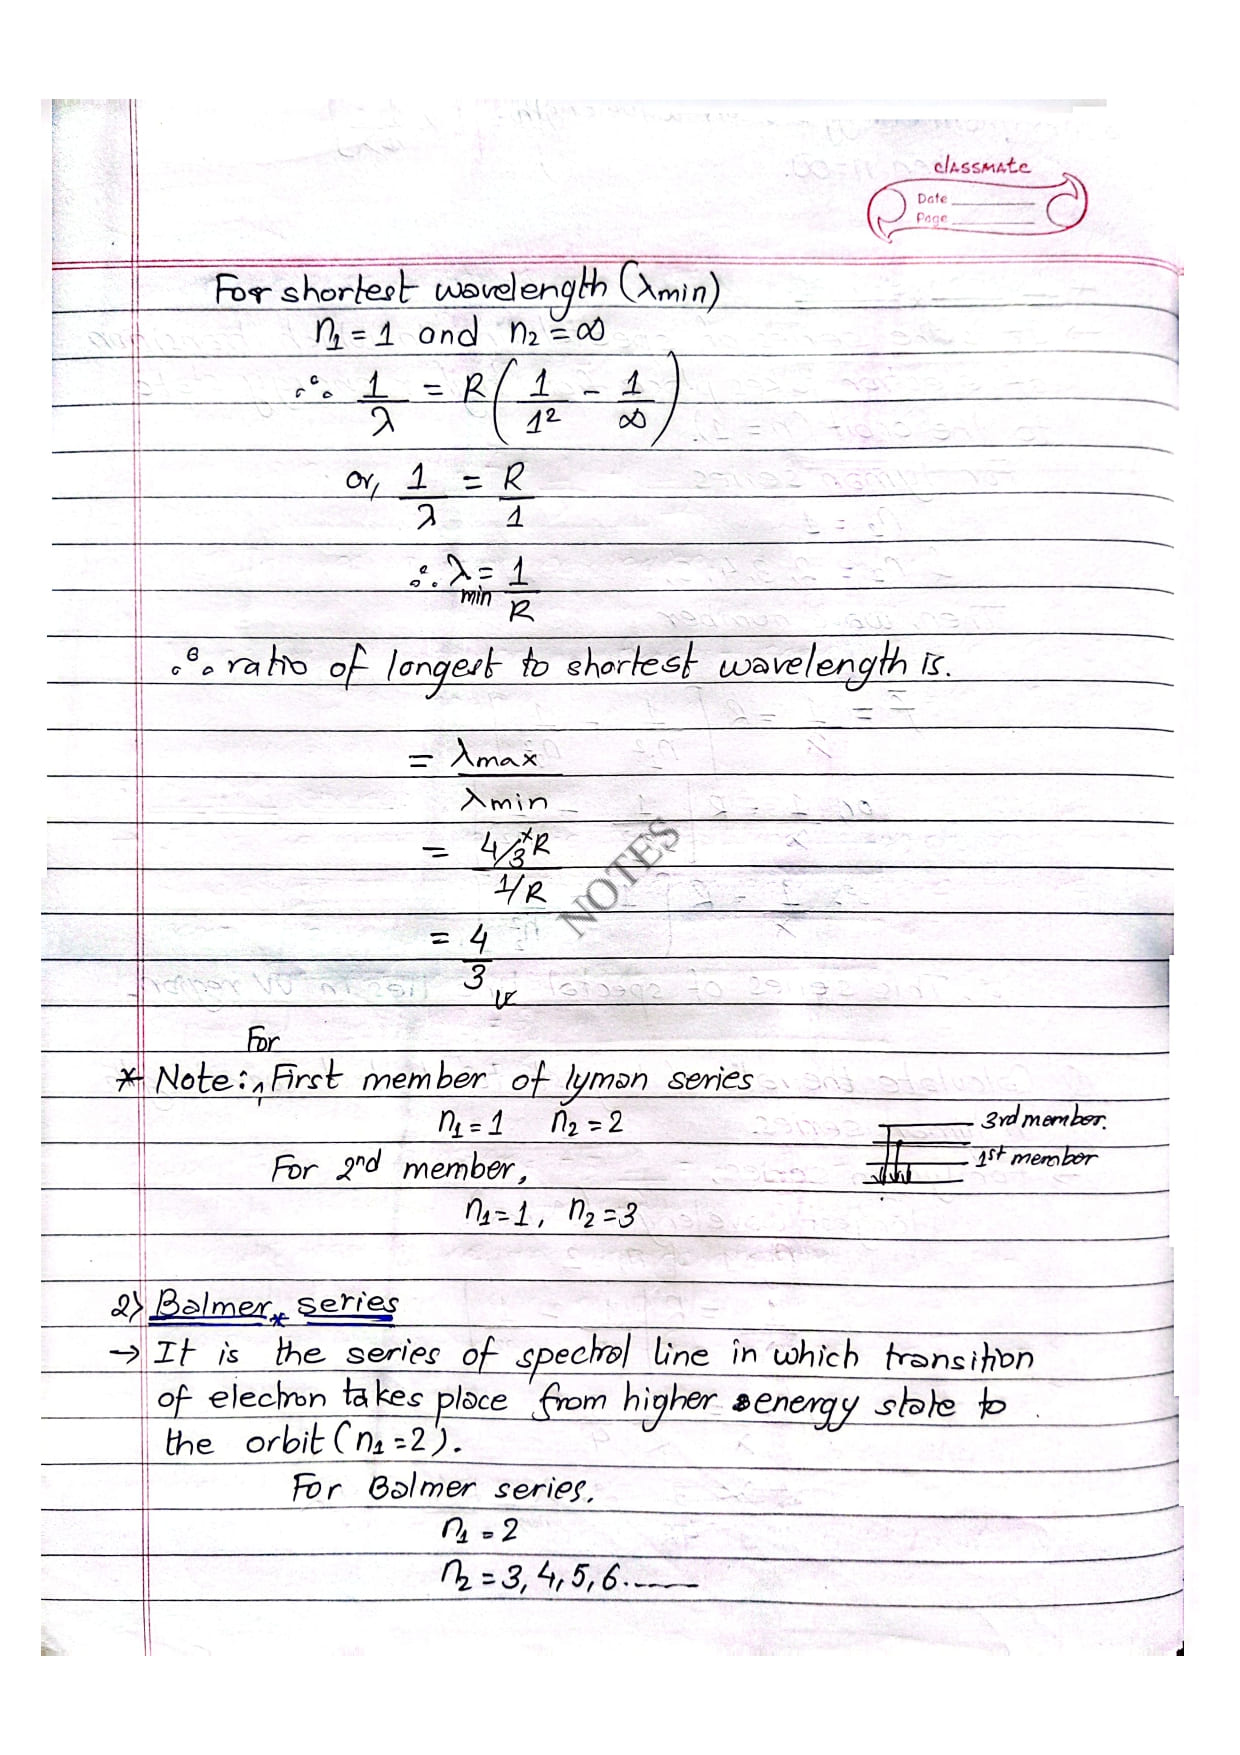 classmate
Date
Page
For shortest wavelength (λmin)
n₁ = 1 and n₂ = ∞
∴ 1/λ = R(1/1² - 1/∞)
or, 1/λ = R/1
∴ λmin = 1/R
∴ ratio of longest to shortest wavelength is.
= λmax/λmin
= (4/3×R)/(1/R)
= 4/3
NOTES
* Note: For First member of lyman series
n₁ = 1 n₂ = 2
3rd member.
1st member
For 2nd member,
n₁ = 1, n₂ = 3
2) Balmer * series
→ It is the series of spectral line in which transition
of electron takes place from higher energy state to
the orbit (n₁ = 2).
For Balmer series.
n₁ = 2
n₂ = 3, 4, 5, 6.......